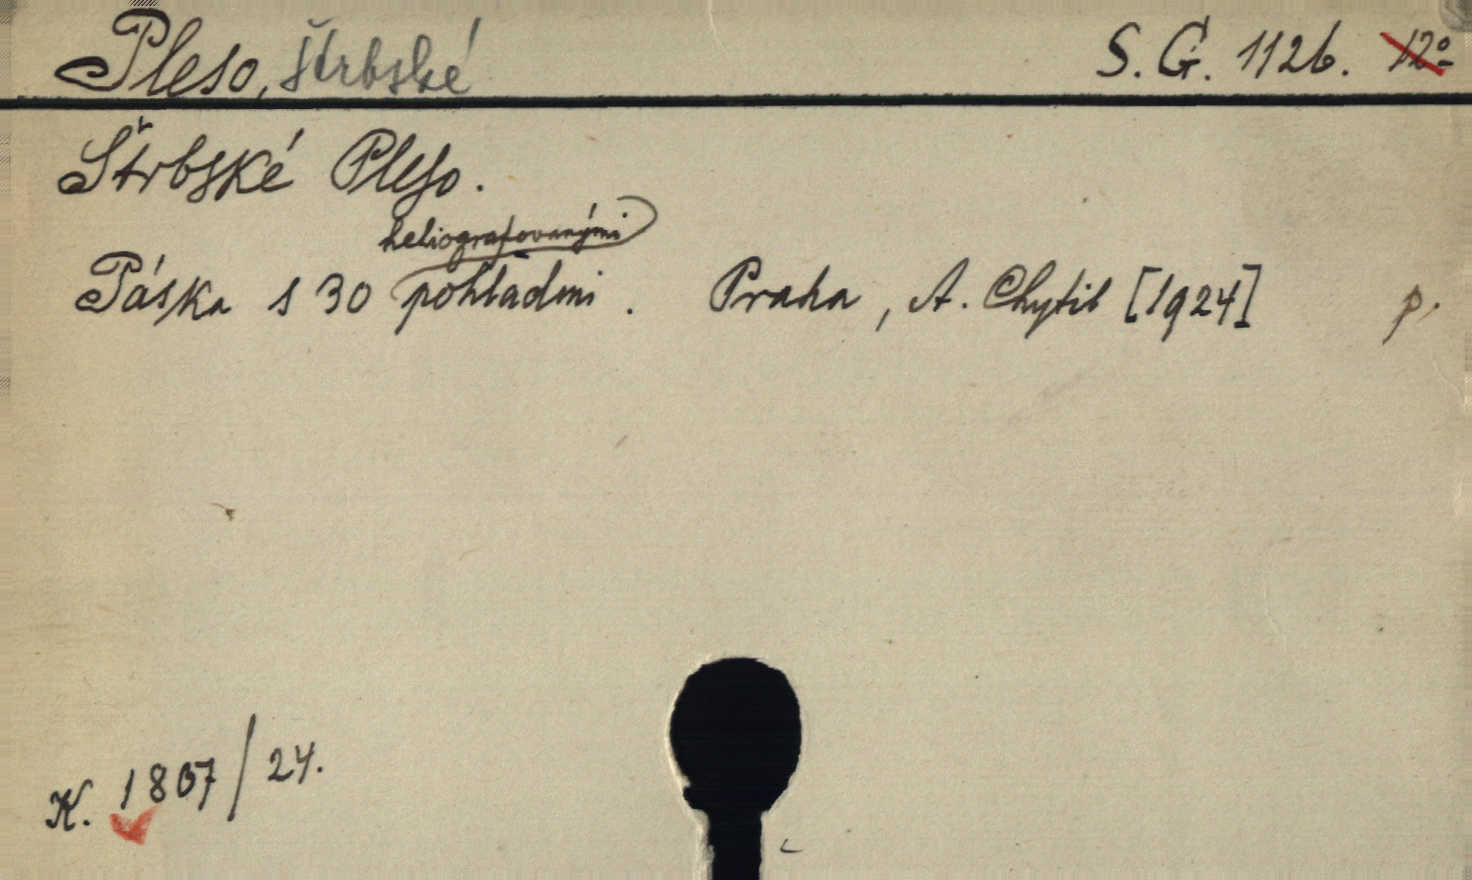 Pleso, Štrbské S. G. 1126. 12º
Štrbské Pleso.
heliografovanými
Páska s 30 pohladmi. Praha, A. Chytil [1924] p.
K. 1807/24.